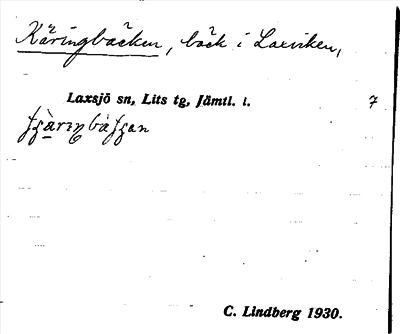 Käringbäcken, bäck i Laxviken,
Laxsjö sn, Lits tg, Jämtl. l.
7
C. Lindberg 1930.